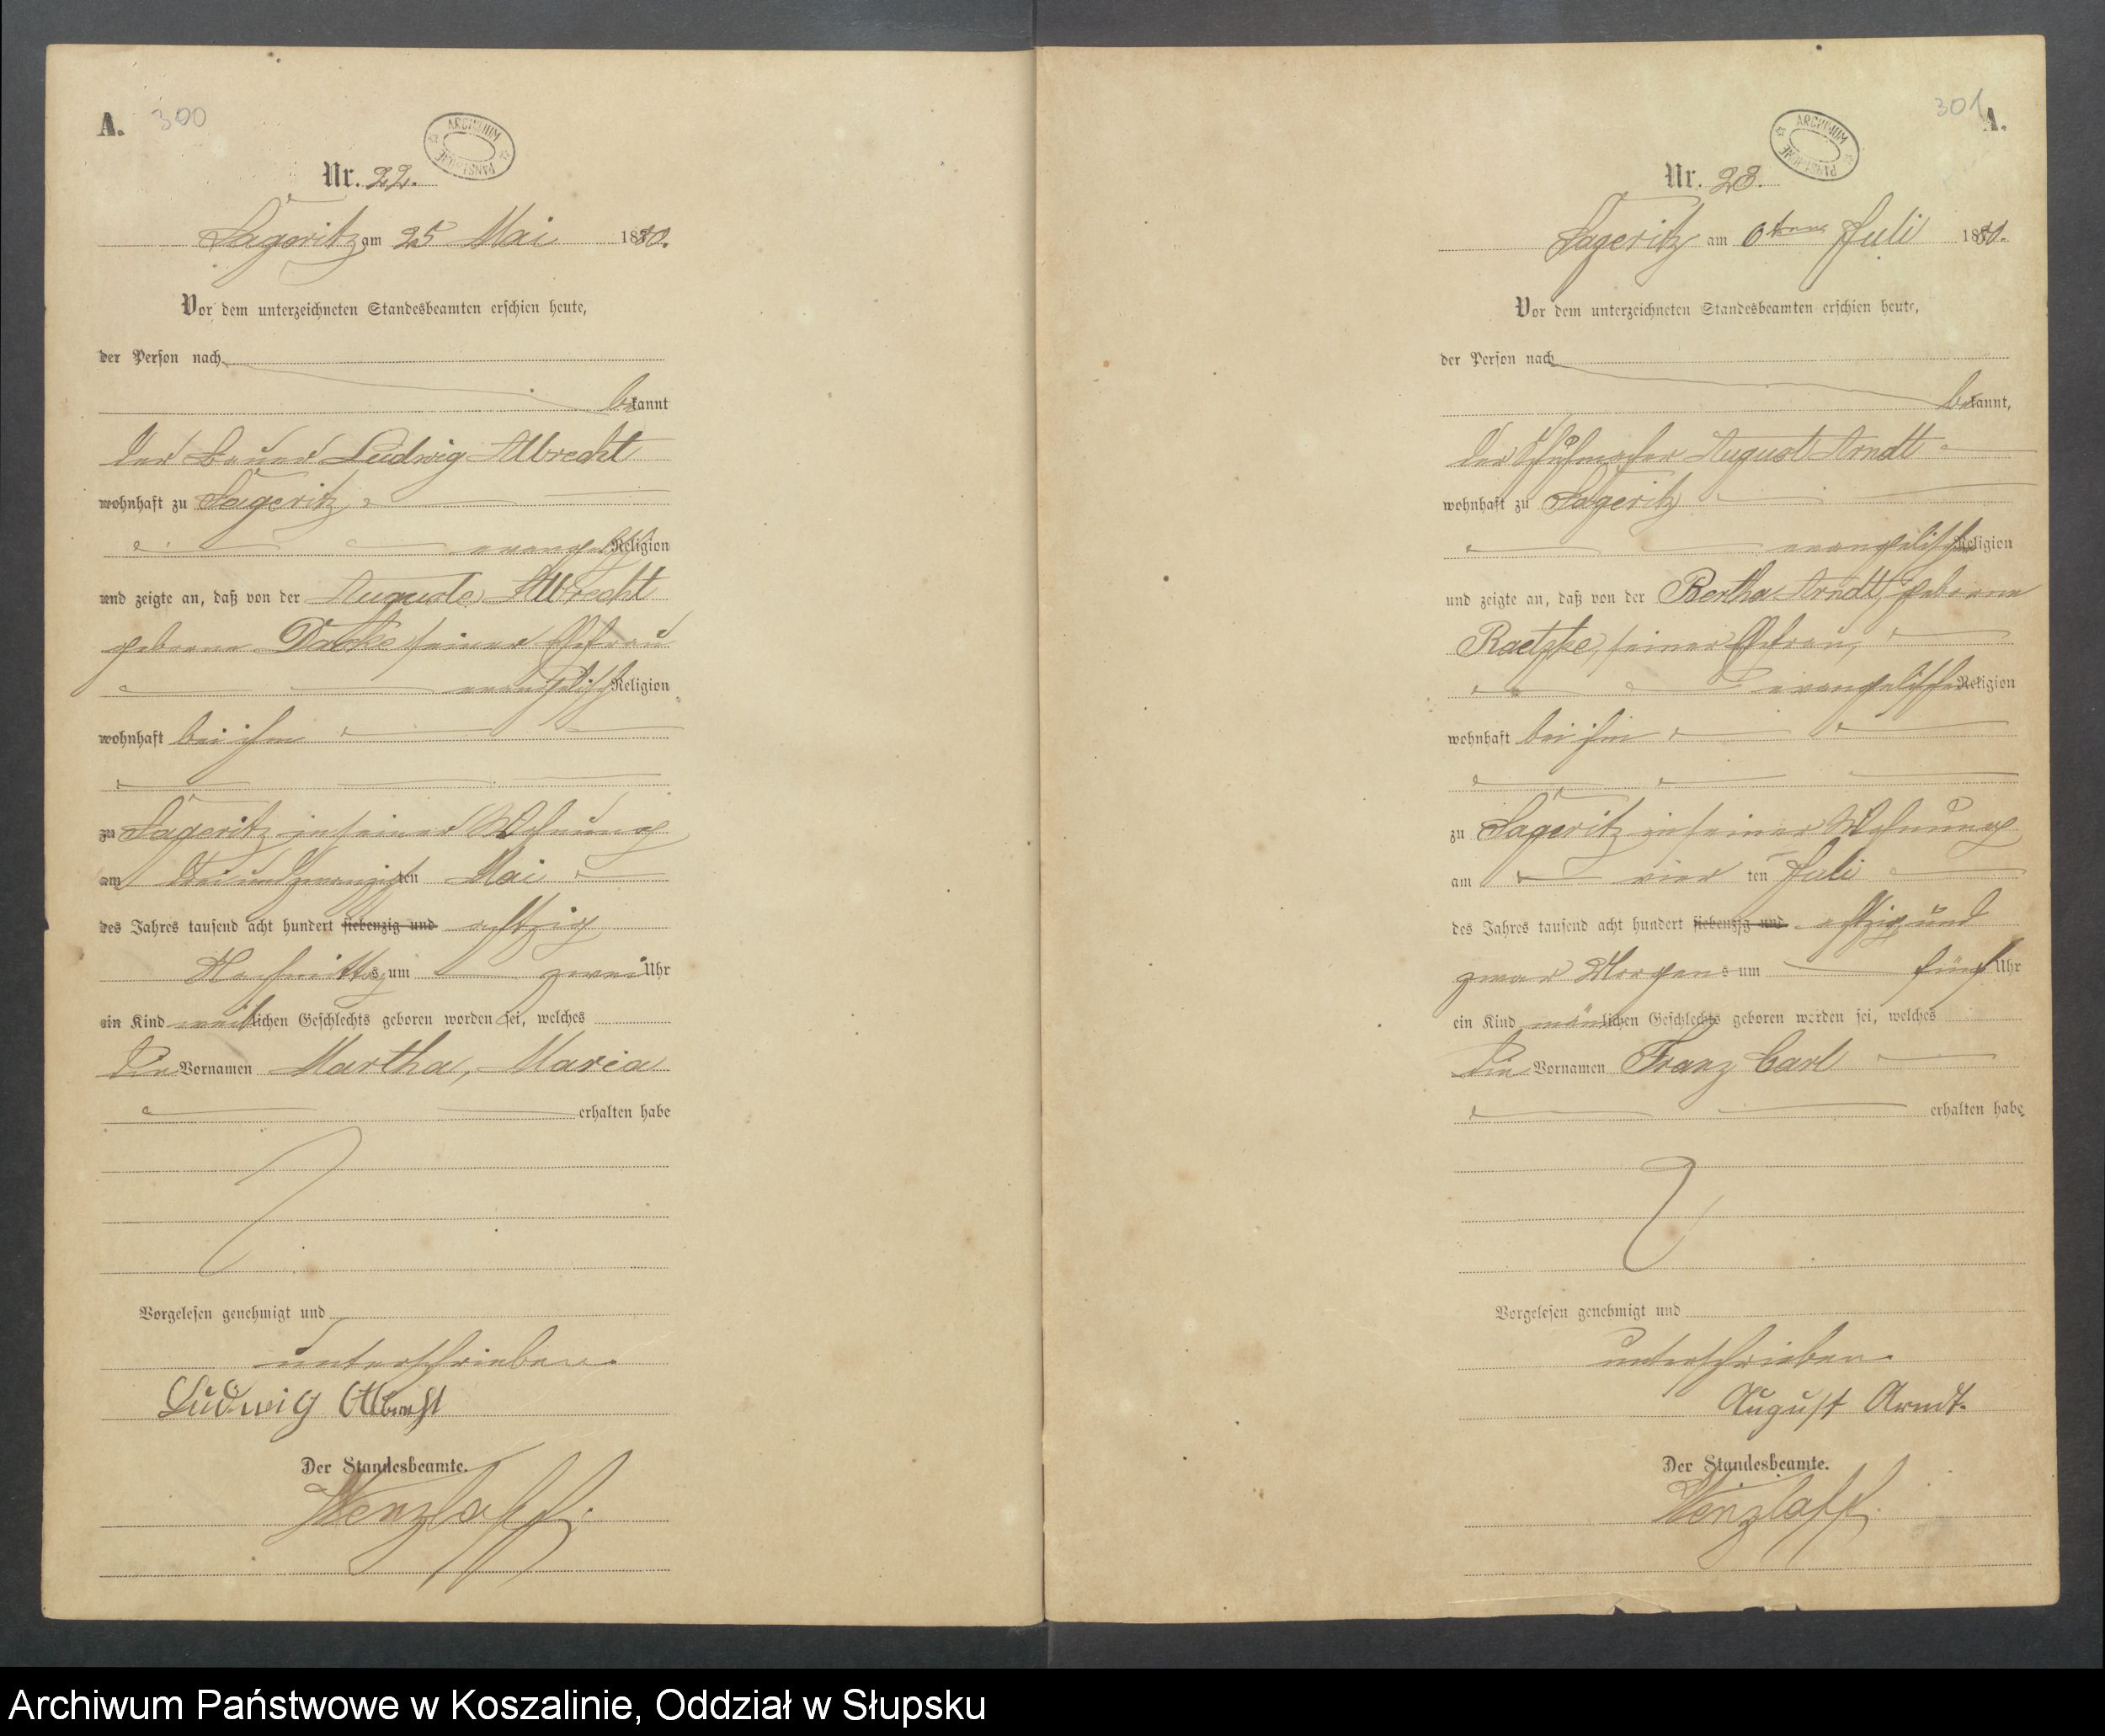 A. 300
ARCHIWUM PAŃSTWOWE
Nr. 22.
Sageritz am 25 Mai 1880.
Vor dem unterzeichneten Standesbeamten erschien heute,
der Person nach
bekannt
der Bauer Ludwig Albrecht
wohnhaft zu Sageritz
evangelisch Religion
und zeigte an, daß von der Auguste Albrecht
geborne seiner Ehefrau
evangelisch Religion
wohnhaft bei ihm
zu Sageritz in seiner Wohnung
am drei und zwanzigsten Mai
des Jahres tausend acht hundert siebenzig und achtzig
Nachmittags um zwei Uhr
ein Kind weiblichen Geschlechts geboren worden sei, welches
die Vornamen Martha, Maria
erhalten habe
Vorgelesen genehmigt und
unterschrieben.
Ludwig Albrecht
Der Standesbeamte.
Wenzlaff.
301 A.
ARCHIWUM PAŃSTWOWE
Nr. 23.
Sageritz am 6ten Juli 1880.
Vor dem unterzeichneten Standesbeamten erschien heute,
der Person nach
bekannt,
der Schuhmacher August Arndt
wohnhaft zu Sageritz
evangelischer Religion
und zeigte an, daß von der Bertha Arndt, geborne
Raetzke, seiner Ehefrau,
evangelischer Religion
wohnhaft bei ihm
zu Sageritz in seiner Wohnung
am vierten Juli
des Jahres tausend acht hundert siebenzig und achtzig und
zwar Morgens um fünf Uhr
ein Kind männlichen Geschlechts geboren worden sei, welches
die Vornamen Franz Carl
erhalten habe
Vorgelesen genehmigt und
unterschrieben.
August Arndt.
Der Standesbeamte.
Wenzlaff.
Archiwum Państwowe w Koszalinie, Oddział w Słupsku